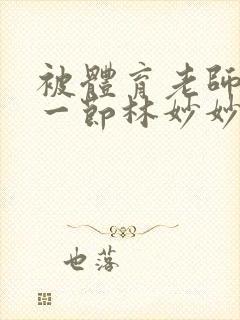 被體育老師
一節林妙妙
也落